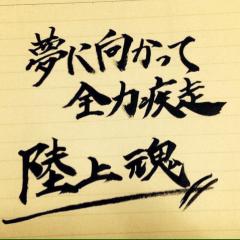 夢に向かって
全力疾走
陸上魂